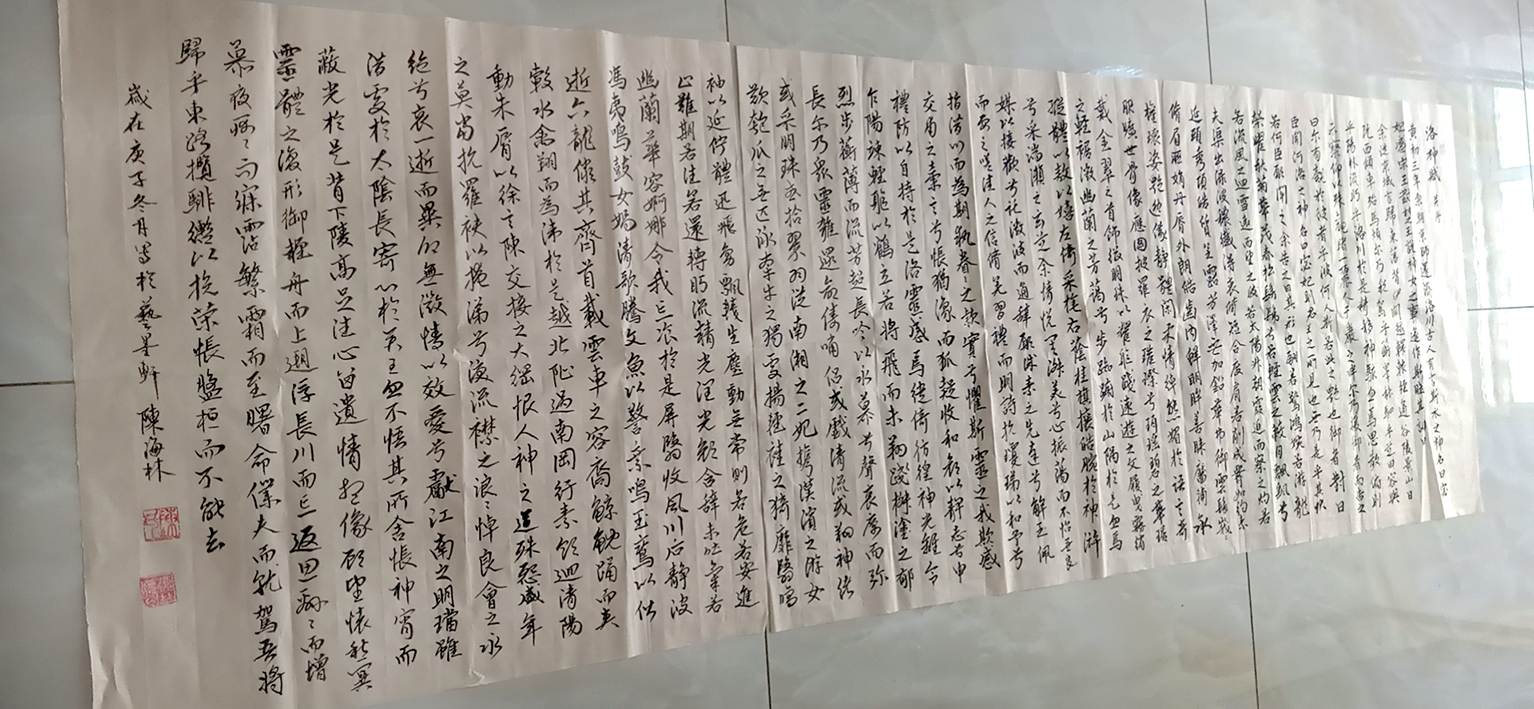 洛神賦 并序
黃初三年余朝京師還濟洛川古人有言斯水之神名曰宓
妃感宋玉對楚王說神女之事遂作斯賦其詞曰
余從京域言歸東藩背伊闕越轘轅經通谷陵景山日
既西傾車殆馬煩爾乃稅駕乎蘅皋秣駟乎芝田容與
乎陽林流盼乎洛川於是精移神駭忽焉思散俯則
未察仰以殊觀睹一麗人于巖之畔爾乃援御者而告之
曰爾有覿於彼者乎彼何人斯若此之艷也御者對曰
臣聞河洛之神名曰宓妃則君王之所見也無乃是乎其狀
若何臣願聞之余告之曰其形也翩若驚鴻婉若游龍
榮曜秋菊華茂春松髣髴兮若輕雲之蔽月飄颻兮
若流風之迴雪遠而望之皎若太陽升朝霞迫而察之灼若
夫渠出淥波穠纖得衷修短合度肩若削成腰如約素
延頸秀項皓質呈露芳澤無加鉛華弗御雲髻峨
脩眉聯娟丹唇外朗皓齒內鮮明眸善睞靨輔承
權瓌姿艷逸儀靜體閑柔情綽態媚於語言奇
服曠世骨像應圖披羅衣之璀璨兮珥瑤碧之華琚
戴金翠之首飾綴明珠以耀軀踐遠遊之文履曳霧綃
之輕裾微幽蘭之芳藹兮步踟躕於山隅於是忽焉
縱體以遨以嬉左倚采旄右蔭桂旗攘皓腕於神滸
兮采湍瀨之玄芝余情悅其淑美兮心振蕩而不怡無良
媒以接歡兮託微波而通辭願誠素之先達兮解玉佩
而要之嗟佳人之信脩羌習禮而明詩抗瓊珶以和予兮
指潛川而為期執眷眷之款實兮懼斯靈之我欺感
交甫之棄言兮悵猶豫而狐疑收和顏以靜志兮申
禮防以自持於是洛靈感焉徙倚彷徨神光離合
乍陽竦輕軀以鶴立若將飛而未翔踐椒塗之郁
烈步蘅薄而流芳超長吟以永慕兮聲哀厲而彌
長爾乃眾靈雜遝命儔嘯侶或戲清流或翔神渚
或采明珠或拾翠羽從南湘之二妃攜漢濱之游女
歎匏瓜之無匹詠牽牛之獨處揚輕袿之猗靡翳脩
袖以延佇體迅飛鳧飄忽生塵動無常則若危若安進
止難期若往若還轉眄流精光潤光顏含辭未吐氣若
幽蘭華容婀娜令我忘湌於是屏翳收風川后靜波
馮夷鳴鼓女媧清歌騰文魚以警乘鳴玉鸞以偕
逝六龍儼其齊首載雲車之容裔鯨鯢踊而夾
轂水禽翔而為衛於是越北沚過南岡紆素領迴清陽
動朱唇以徐言陳交接之大綱恨人神之道殊怨盛年
之莫當抗羅袂以掩涕兮淚流襟之浪浪悼良會之永
絕兮哀一逝而異鄉無微情以效愛兮獻江南之明璫雖
潛處於太陰長寄心於君王忽不悟其所舍悵神宵而
蔽光於是背下陵高足往心留遺情想像顧望懷愁冥
靈體之復形御輕舟而上遡浮長川而忘返思綿綿而增
慕夜耿耿而寐霑繁霜而至曙命僕夫而就駕吾將
歸乎東路攬騑轡以抗策悵盤桓而不能去
歲在庚子冬月寫於藝墨軒 陳海林